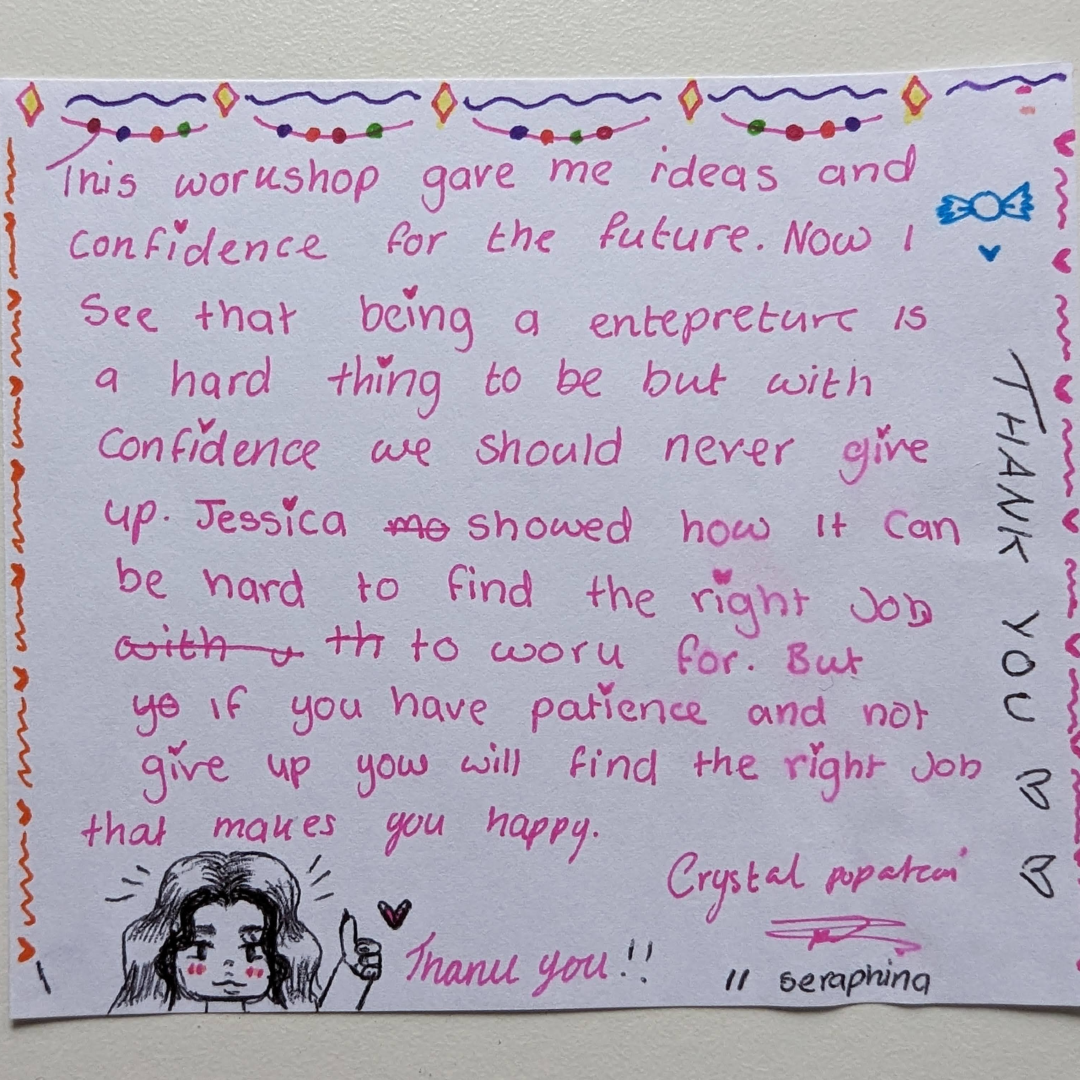 This workshop gave me ideas and
confidence for the future. Now I
see that being a entepreture is
a hard thing to be but with
confidence we should never give
up. Jessica mo showed how it can
be hard to find the right Job
with u th to work for. But
yo if you have patience and not
give up yow will find the right Job
that makes you happy.
Crystal
Thank you!!
// seraphina
THANK YOU